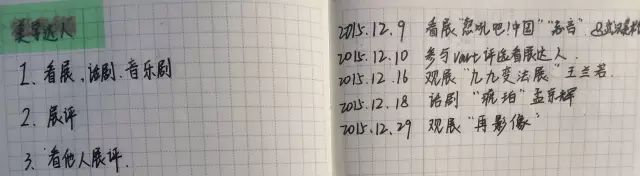 美学达人
1、看展、话剧、音乐剧
2、展评
3、看他人展评.
2015.12.9 看展"怒吼吧!中国"
2015.12.10 参与vart评选看展达人.
2015.12.16 观展"九九变法展"王兰若.
2015.12.18 话剧"琥珀"孟京辉
2015.12.29 观展"再影像"